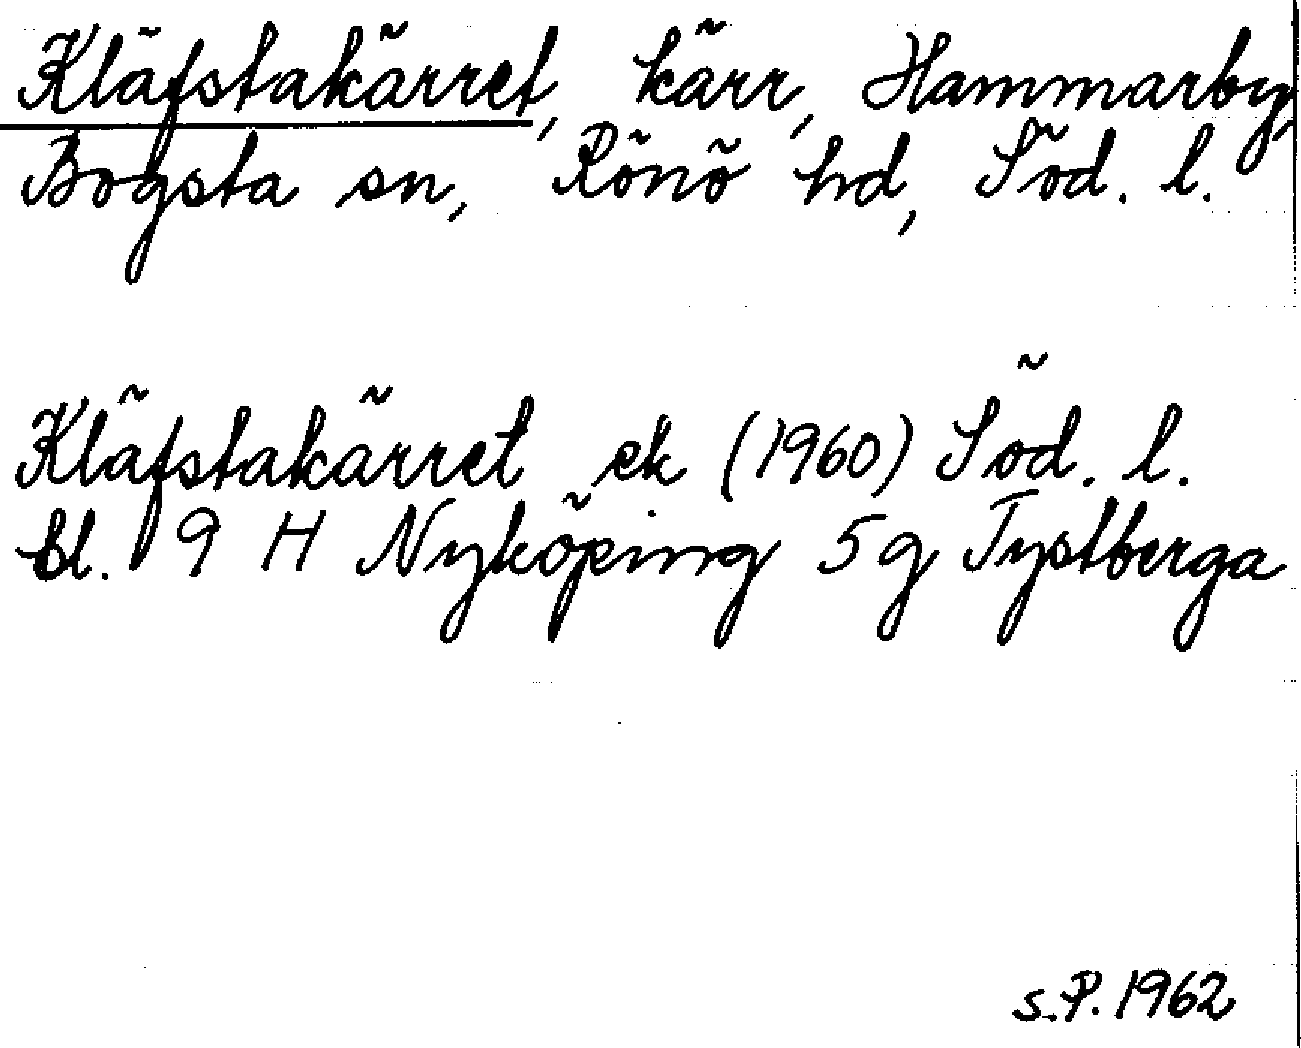 Kläfstakärret, kärr, Hammarby,
Bogsta sn, Rönö hd, Söd. l.
Kläfstakärret ek (1960) Söd. l.
bl. 9 H Nyköping 5 g Tystberga
S.P. 1962